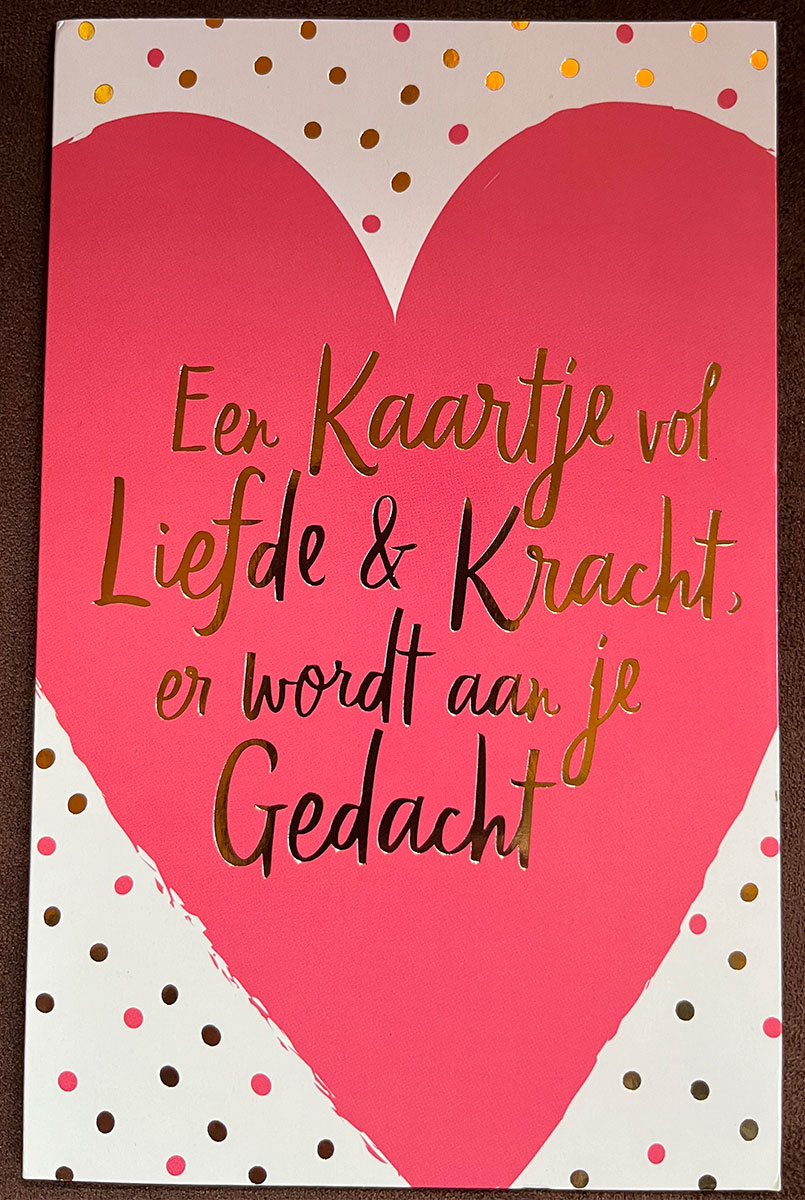 Een Kaartje vol
Liefde & Kracht,
er wordt aan je
Gedacht